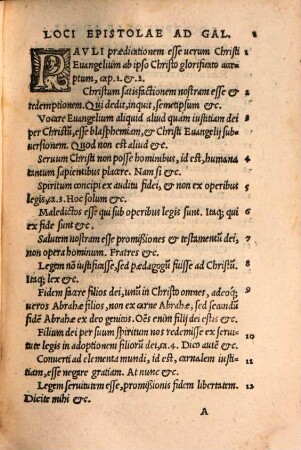 LOCI EPISTOLAE AD GAL.
PAVLI prædicationem esse uerum Christi 1
Euangelium ab ipso Christo glorificato acce
ptum, cap. 1. & 2.
Christum satisfactionem nostram esse & 2
redemptionem. Qui dedit, inquit, semetipsum &c.
Vocare Euangelium aliquid aliud quam iustitiam dei 3
per Christū, esse blasphemiam, & Christi Euangelij sub
uersionem. Quod non est aliud &c.
Seruum Christi non posse hominibus, id est, humanæ 4
tantum sapientibus placere. Nam si &c.
Spiritum concipi ex auditu fidei, & non ex operibus 5
legis, ca. 3. Hoc solum &c.
Maledictos esse qui sub operibus legis sunt. Itaq; qui 6
ex fide sunt &c.
Salutem nostram esse promißiones & testamentū dei, 7
non opera hominum. Fratres &c.
Legem nō iustificasse, sed pædagogū fuisse ad Christū. 8
Itaq; lex &c.
Fidem facere filios dei, unū in Christo omnes, adeoq; 9
ueros Abrahæ filios, non ex carne Abrahæ, sed secundū
fidē Abrahæ ex deo genitos. Oēs enim filij dei estis &c.
Filium dei per suum spiritun nos redemisse ex serui 10
tute legis in adoptionem filiorū dei, ca. 4. Dico autē &c.
Conuerti ad elementa mundi, id est, carnalem iusti 11
tiam, esse negare gratiam. At nunc &c.
Legem seruitutem esse, promißionis fidem libertatem. 12
Dicite mihi &c.
A